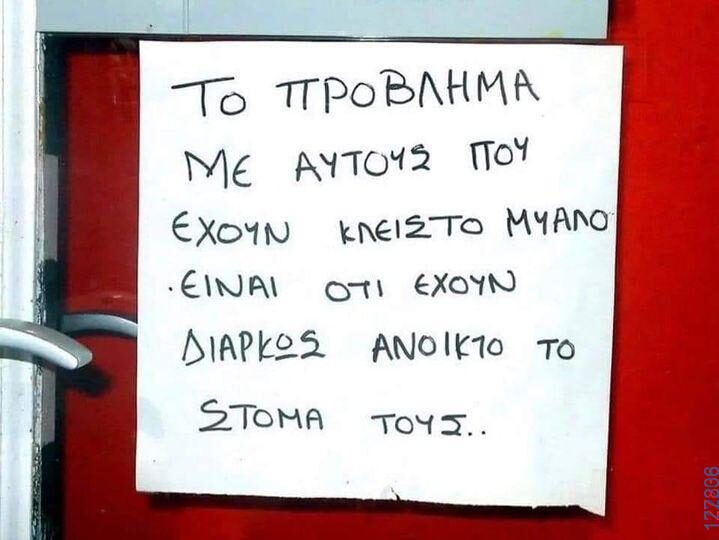 ΤΟ ΠΡΟΒΛΗΜΑ
ΜΕ ΑΥΤΟΥΣ ΠΟΥ
ΕΧΟΥΝ ΚΛΕΙΣΤΟ ΜΥΑΛΟ
.ΕΙΝΑΙ ΟΤΙ ΕΧΟΥΝ
ΔΙΑΡΚΩΣ ΑΝΟΙΚΤΟ ΤΟ
ΣΤΟΜΑ ΤΟΥΣ..
122806